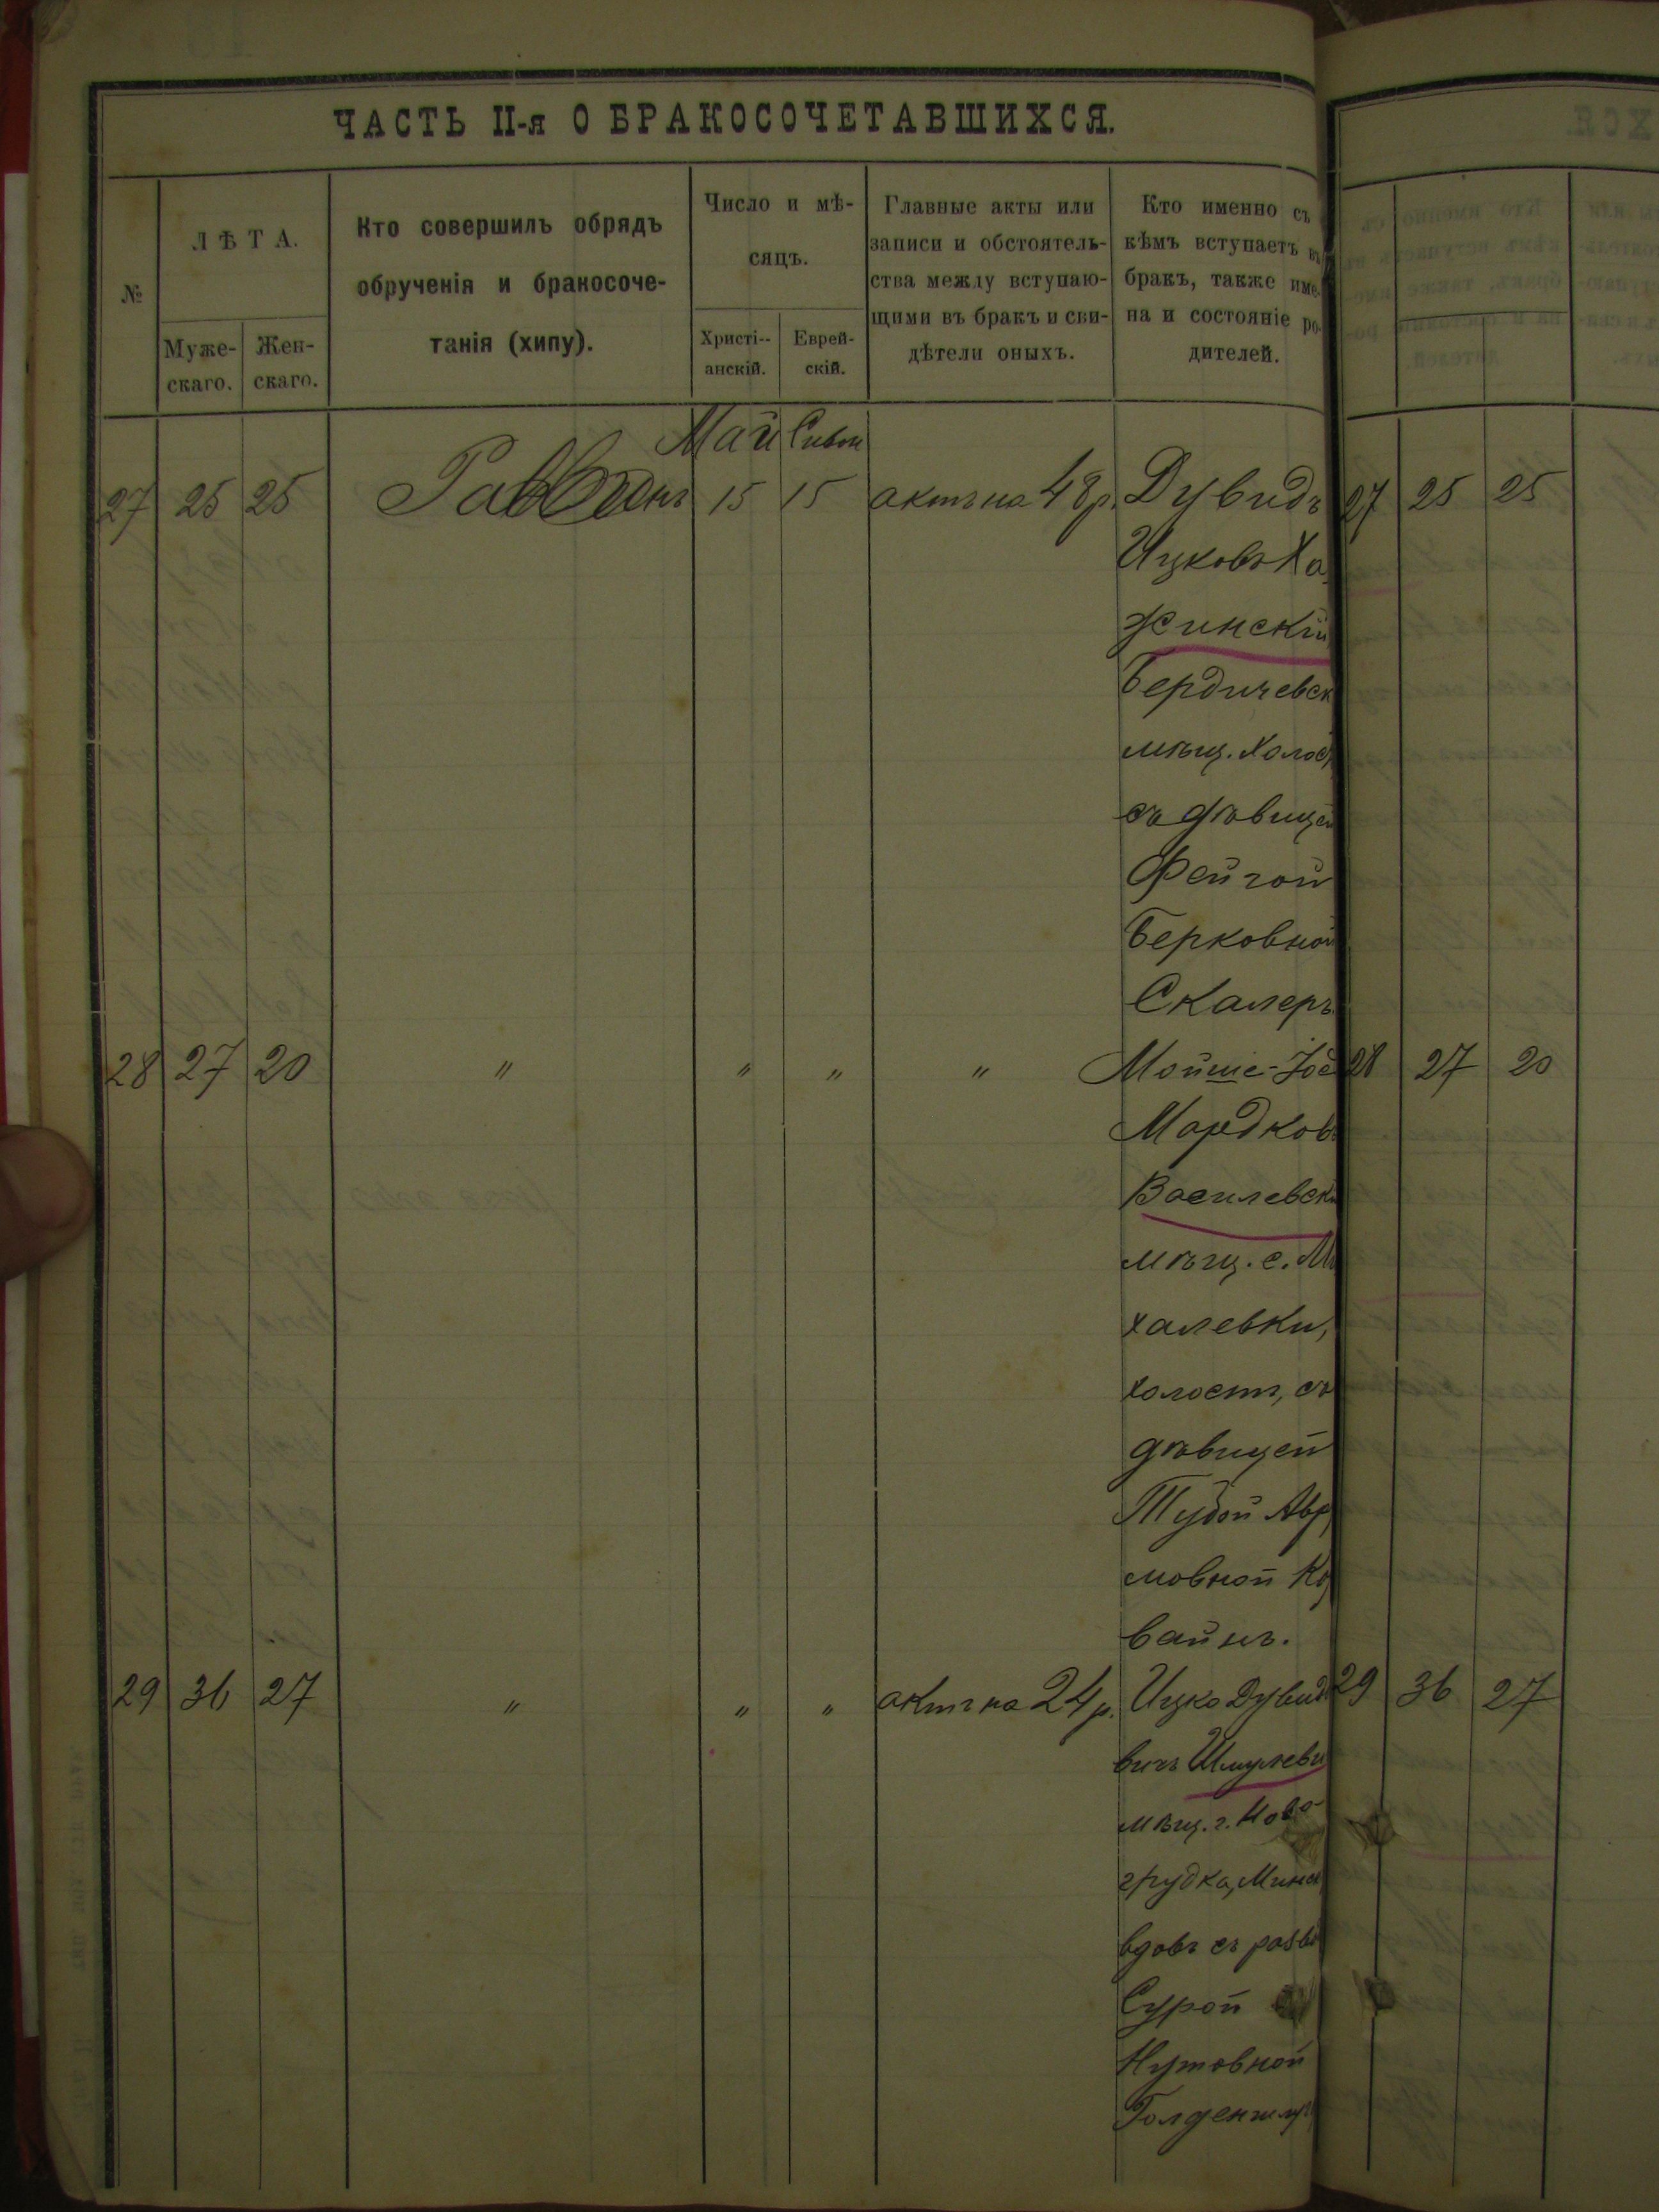 ЧАСТЬ II-я О БРАКОСОЧЕТАВШИХСЯ.
№
ЛѢТА.
Муже-
скаго.
Жен-
скаго.
Кто совершилъ обрядъ
обрученія и бракосоче-
танія (хипу).
Число и мѣ-
сяцъ.
Христі-
анскій.
Еврей-
скій.
Главные акты или
записи и обстоятель-
ства между вступаю-
щими въ бракъ и сви-
дѣтели оныхъ.
Кто именно съ
кѣмъ вступаетъ въ
бракъ, также име-
на и состояніе ро-
дителей.
Май Сивон
27 25 25 15 15 актъ на 48 р. Дувидъ
Ицковъ Ха
жинскій
Бердичевск
мѣщ. холост
съ дѣвицей
Фейгой
Берковной
Скалеръ
28 27 20 " " " " Мойше-Іос
Мордковъ
Василевск
мѣщ. с. Ми
халевки,
холостъ, съ
дѣвицей
Тубой Авр
мовной
вайнъ.
29 36 27 " " " актъ на 24 р. Ицко Дувид
вичъ Шмулеви
мѣщ. г. Ново-
грудка, Минск
вдовъ съ разв
Сурой
Нутовной
27 25 25
28 27 20
29 36 27